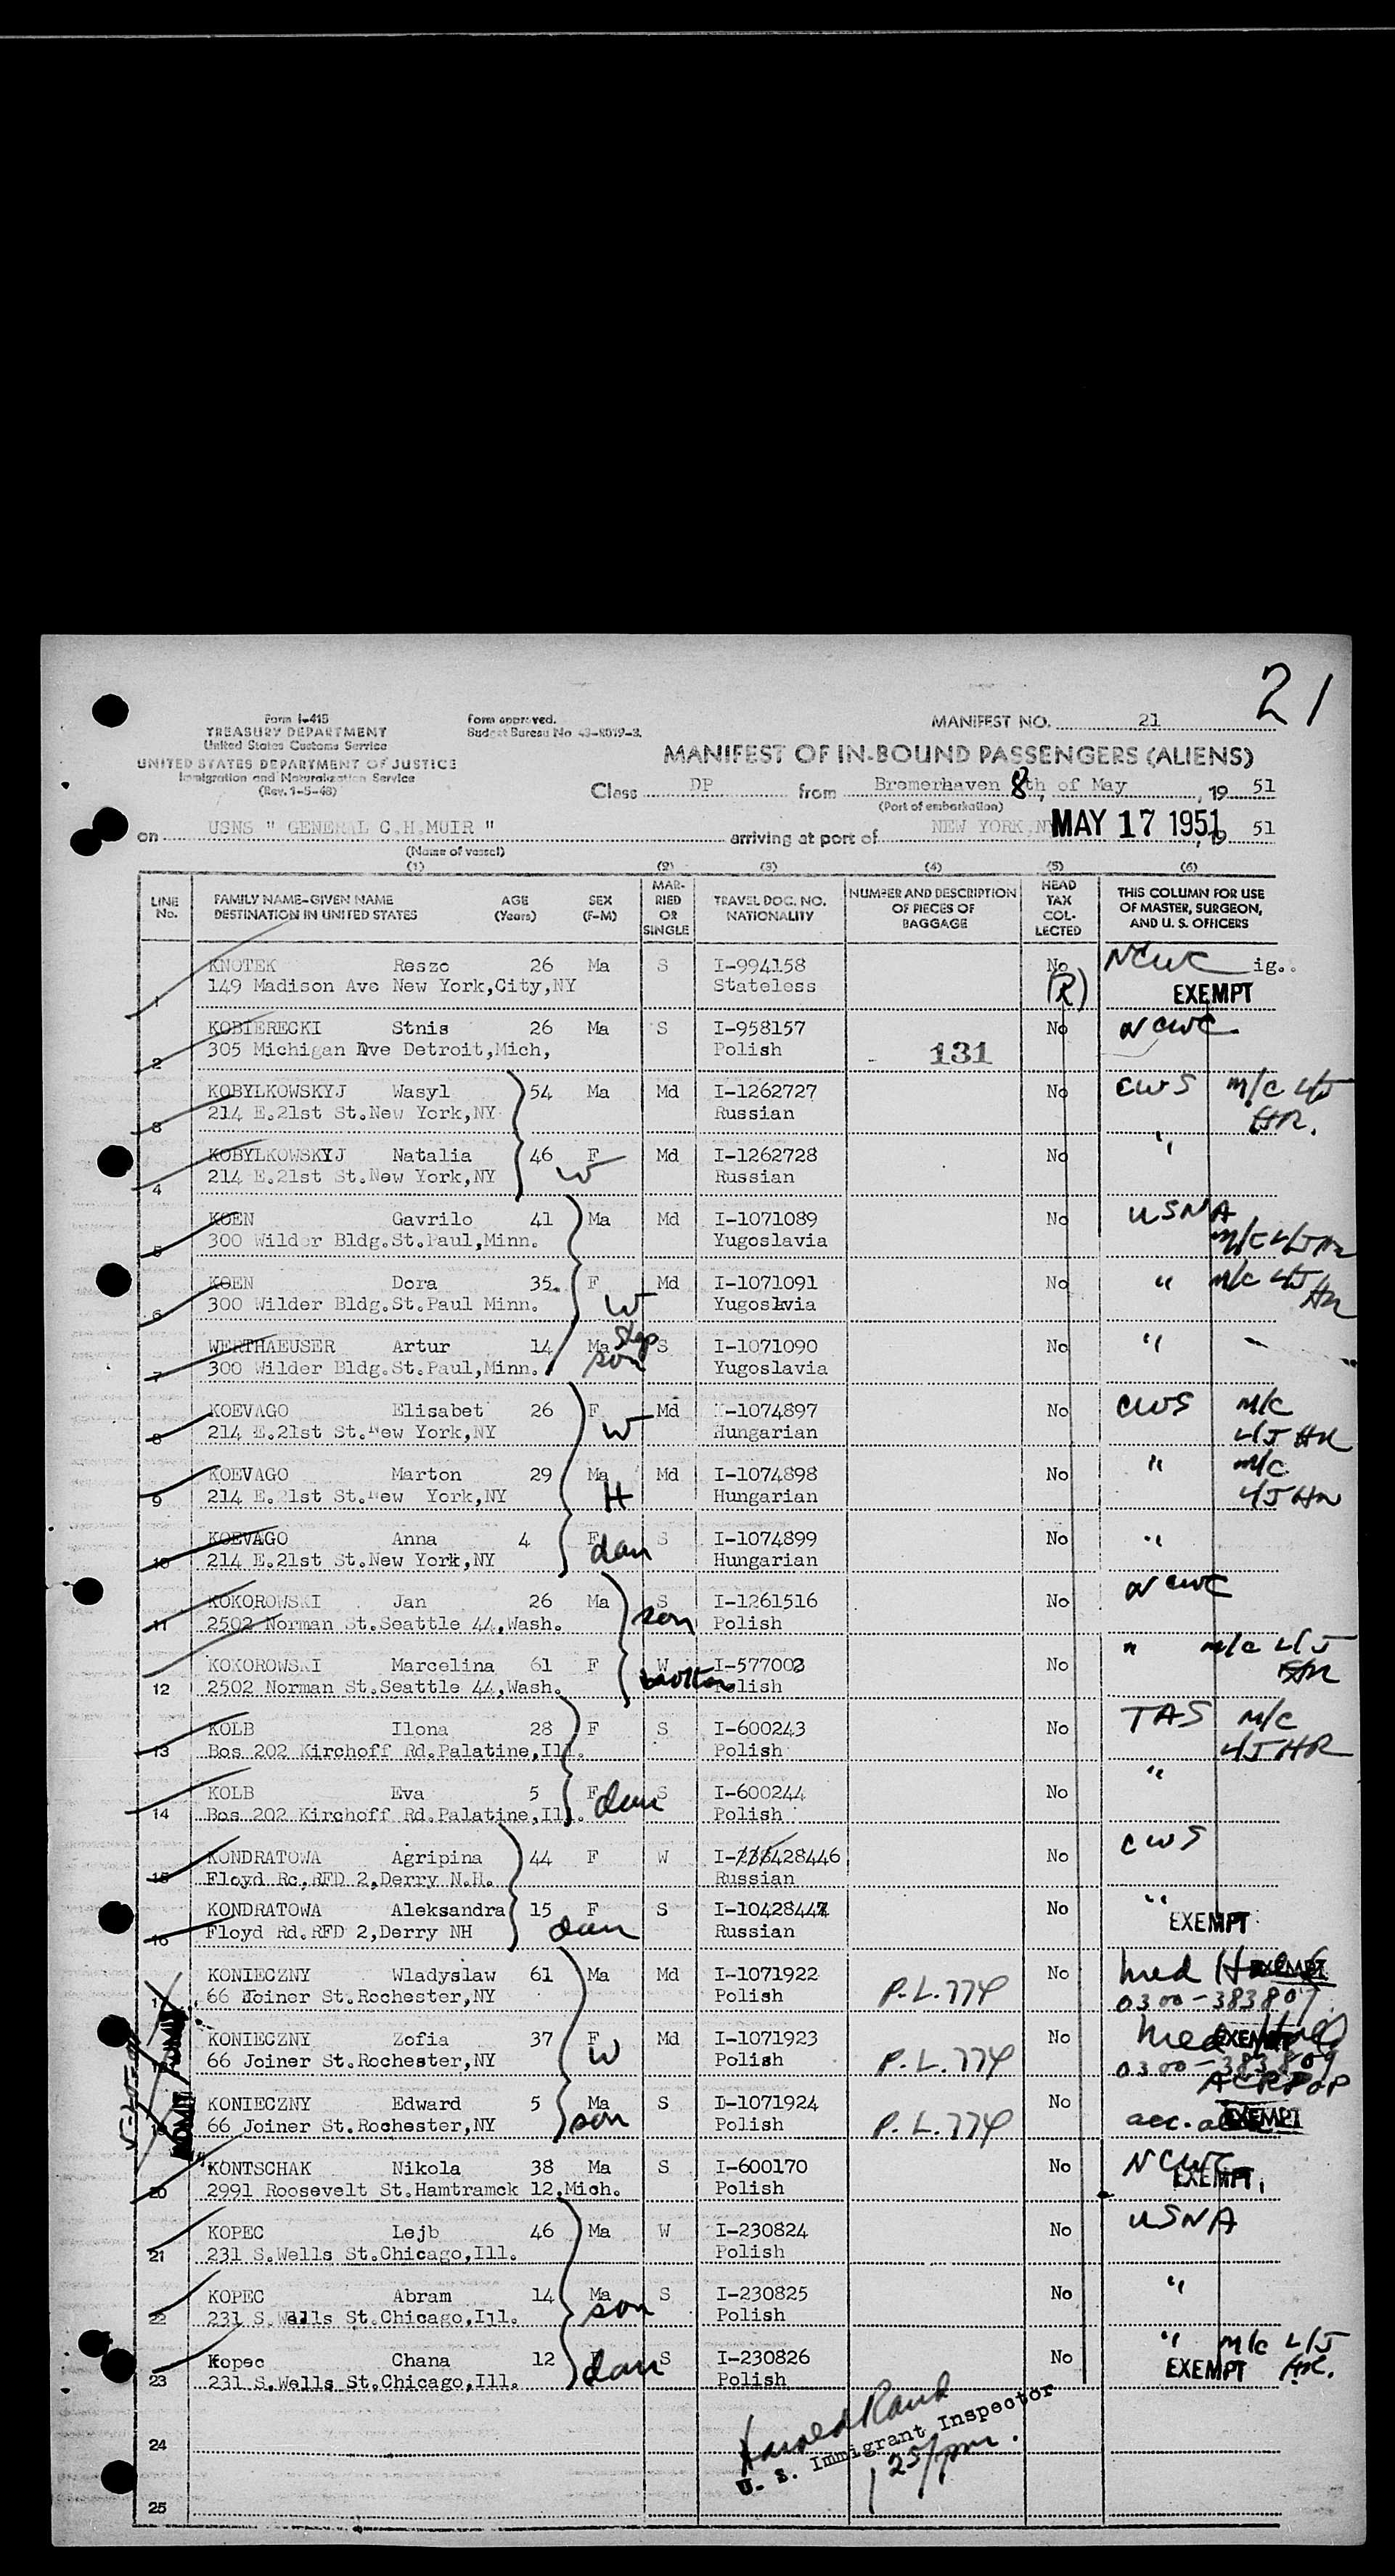 21
Form I-415
TREASURY DEPARTMENT
United States Customs Service
UNITED STATES DEPARTMENT OF JUSTICE
Immigration and Naturalization Service
(Rev. 1-5-48)
Form approved.
Budget Bureau No 43-R019-3.
MANIFEST NO. 21
MANIFEST OF IN-BOUND PASSENGERS (ALIENS)
Class DP from Bremerhaven 8th of May, 19 51
(Port of embarkation)
on USNS " GENERAL C.H.MUIR " arriving at port of NEW YORK,NY MAY 17 1951, 19 51
(Name of vessel)
(1) (2) (3) (4) (5) (6)
LINE No. FAMILY NAME-GIVEN NAME DESTINATION IN UNITED STATES AGE (Years) SEX (F-M) MARRIED OR SINGLE TRAVEL DOC. NO. NATIONALITY NUMBER AND DESCRIPTION OF PIECES OF BAGGAGE HEAD TAX COLLECTED THIS COLUMN FOR USE OF MASTER, SURGEON, AND U. S. OFFICERS
KNOTEK Reszo 26 Ma S I-994158 No NCWC ig..
1 149 Madison Ave New York,City,NY Stateless (R) EXEMPT
KOBIERECKI Stnis 26 Ma S I-958157 No NCWC
2 305 Michigan Ave Detroit,Mich, Polish 131
KOBYLKOWSKYJ Wasyl 54 Ma Md I-1262727 No CWS m/c 4/5
3 214 E.21st St.New York,NY Russian HR.
KOBYLKOWSKYJ Natalia 46 F Md I-1262728 No "
4 214 E.21st St.New York,NY W Russian
KOEN Gavrilo 41 Ma Md I-1071089 No USNA
5 300 Wilder Bldg.St.Paul,Minn. Yugoslavia m/c 4/5 HR
KOEN Dora 35. F Md I-1071091 No " m/c 4/5
6 300 Wilder Bldg.St.Paul Minn. W Yugoslavia HR
WERTHAEUSER Artur 14 Ma Step S I-1071090 No "
7 300 Wilder Bldg.St.Paul,Minn. son Yugoslavia
KOEVAGO Elisabet 26 F Md I-1074897 No CWS m/c
8 214 E.21st St.New York,NY W Hungarian 4/5 HR
KOEVAGO Marton 29 Ma Md I-1074898 No " m/c
9 214 E.21st St.New York,NY H Hungarian 4/5 HR
KOEVAGO Anna 4 F S I-1074899 No "
10 214 E.21st St.New York,NY dau Hungarian
KOKOROWSKI Jan 26 Ma S I-1261516 No NCWC
11 2502 Norman St.Seattle 44,Wash. son Polish
KOKOROWSKI Marcelina 61 F W I-577003 No " m/c 4/5
12 2502 Norman St.Seattle 44,Wash. mother Polish HR
KOLB Ilona 28 F S I-600243 No TAS m/c
13 Bos 202 Kirchoff Rd.Palatine,Ill. Polish 4/5 HR
KOLB Eva 5 F S I-600244 No "
14 Bos 202 Kirchoff Rd.Palatine,Ill. dau Polish
KONDRATOWA Agripina 44 F W I-428446 No CWS
15 Floyd Rc.RFD 2,Derry N.H. Russian
KONDRATOWA Aleksandra 15 F S I-10428447 No "
16 Floyd Rd.RFD 2,Derry NH dau Russian EXEMPT
KONIECZNY Wladyslaw 61 Ma Md I-1071922 No med Hold EXEMPT
17 66 Joiner St.Rochester,NY Polish P.L.774 0300-383807
KONIECZNY Zofia 37 F Md I-1071923 No med Hold EXEMPT
66 Joiner St.Rochester,NY W Polish P.L.774 0300-383809
KONIECZNY Edward 5 Ma S I-1071924 No
19 66 Joiner St.Rochester,NY son Polish P.L.774 acc. EXEMPT
ADMIT
ADMIT
KONTSCHAK Nikola 38 Ma S I-600170 No NCWC
20 2991 Roosevelt St.Hamtramck 12,Mich. Polish EXEMPT
KOPEC Lejb 46 Ma W I-230824 No USNA
21 231 S.Wells St.Chicago,Ill. Polish
KOPEC Abram 14 Ma S I-230825 No "
22 231 S.Wells St.Chicago,Ill. son Polish
Kopec Chana 12 F S I-230826 No " m/c 4/5
23 231 S.Wells St.Chicago,Ill. dau Polish EXEMPT HR.
24
Harold Rand
U. S. Immigrant Inspector
25